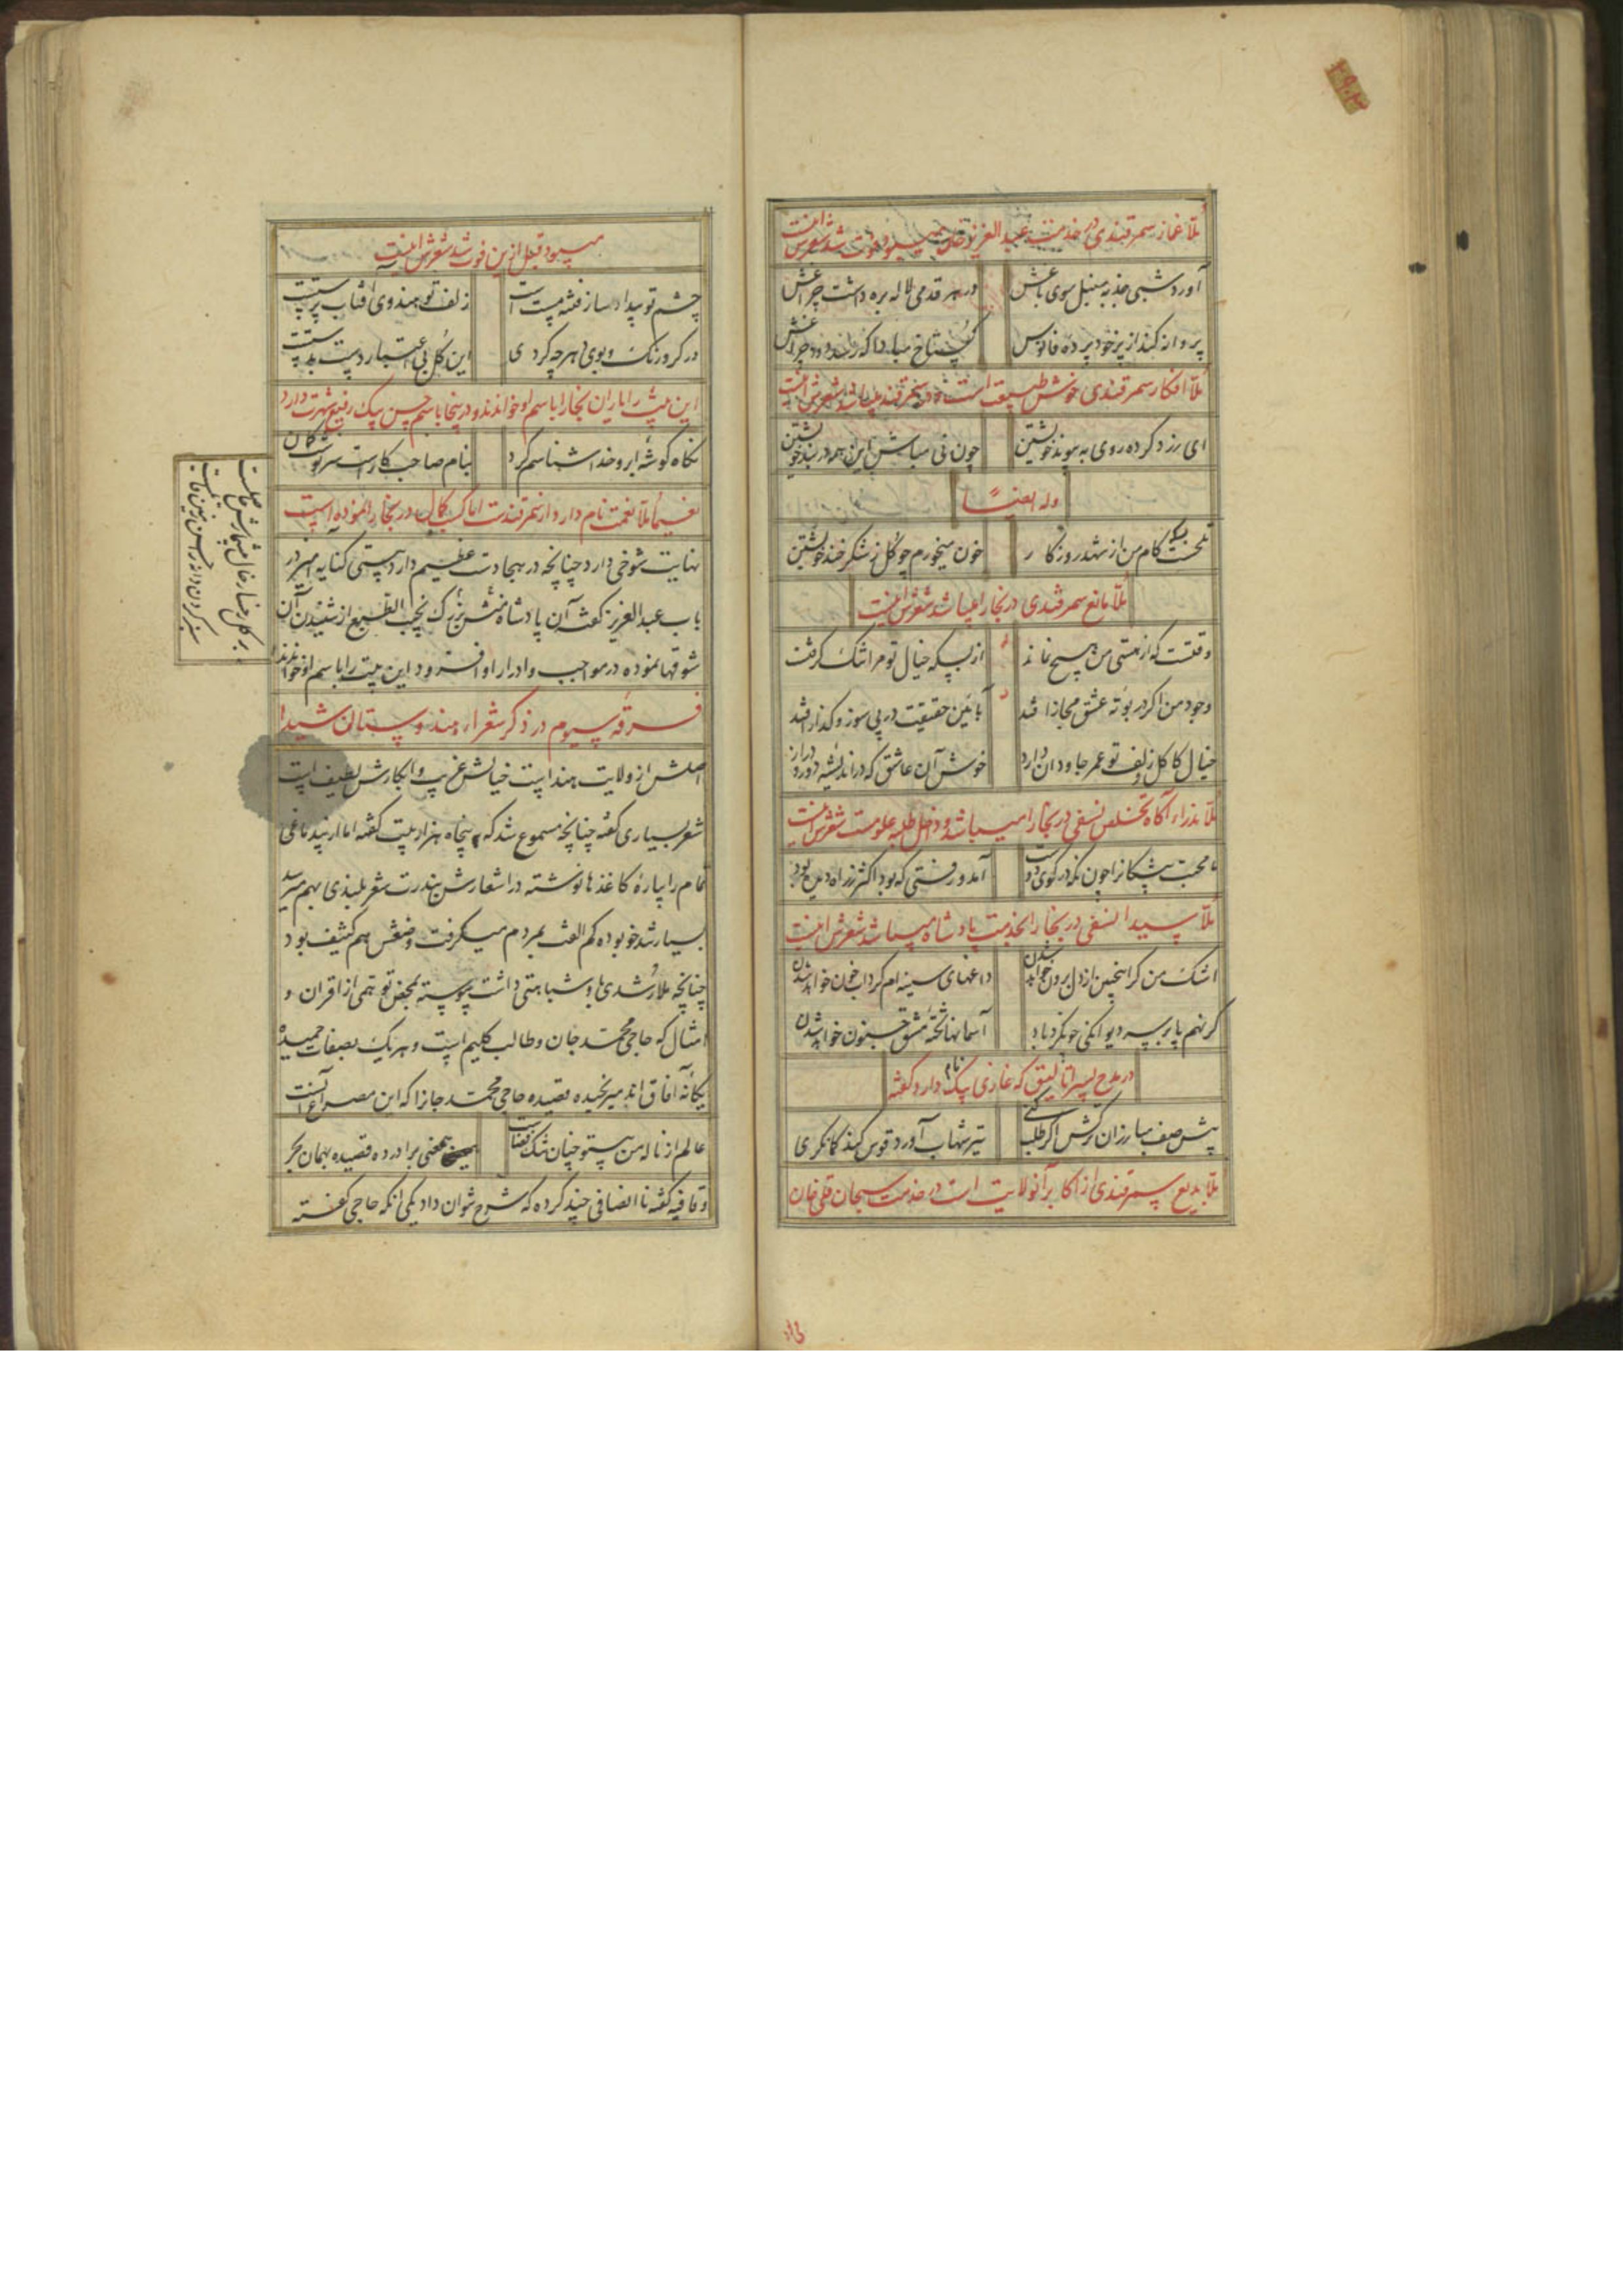 ملا غماز سمرقندی در خدمت عبدالعزیز خان میبود فوت شد شعرش اینست
آورد شبی جذبه سنبل سوی باغش در هر قدمی لاله بره داشت چراغش
پروانه کند از پر خود پرده فانوس گستاخ مبادا که رسد دود چراغش
ملا افکار سمرقندی خوش طبیعت است و در سمرقند میباشد شعرش اینست
ای رزد کرده روی به پیوند خویشتن چون نی مباش این همه در بند خویشتن
وله ایضاً
تلخست بسکه کام من از شهد روزگار خون میخورم چو گل ز شکرخند خویشتن
ملا مانع سمرقندی در بخارا میباشد شعرش اینست
وقتست که از هستی من هیچ نماند از بسکه خیال تو مرا تنک گرفت
وجود من اگر در بوته عشق مجاز افتد بآئین حقیقت در پی سوز و گداز افتد
خیال کاکل و زلف تو عمر جاودان دارد خوش آن عاشق که در اندیشه دور و دراز
ملا نذراء آگاه تخلص نسفی در بخارا میباشد و داخل طلبه علومست شعرش اینست
محبت پیشکانرا چون نکه در کوی دوست آمد و رفتی که بود اکثر ز راه دیده بود
ملا سیدا نسفی در بخارا بخدمت پادشاه میباشد شعرش اینست
اشک من گر اینچنین از دل برون خواهد شدن داغهای سینه ام گرداب خون خواهد شدن
گر نهم پا بر سر دیوانگی چون گردباد آسمانها تخته مشق جنون خواهد شدن
در مدح پسر اتالیق که غازی بیک نام دارد گفته
پیش صف مبارزان ترکش اگر طلب کنی تیر شهاب آورد قوس کند کمانکری
ملا بدیع سمرقندی از اکابر آنولایت است در خدمت سبحان قلی خان
میبود قبل ازین فوت شد شعرش اینست
چشم تو بیداد ساز فتنه مست است زلف تو هندوی آفتاب پرست است
در گرو رنک و بوی هر چه کردی این گل بی اعتبار دست بدست است
این بیت را یاران بخارا باسم او خواندند و در پنجا باسم حسن بیک رفیع شهرت دارد
نگاه گوشه ابرو خدا شناسم کرد بنام صاحب کار است سرنوشت کمان
نعیما ملا نعمت نام دارد از سمرقند است اما کسب کمال در بخارا نموده است
نهایت شوخی دارد چنانچه در هجا دست عظیم دارد بیتی کنایه آمیز در
باب عبدالعزیز گفته آن پادشاه منش بزرک نجیب الطبع از شنیدن آن
شوقها نموده در مواجب و ادرار او افزود این بیت را باسم او خواندند
بر گل رخسار خال بیشمارش خوشست
سبز کردن دانه در چنین زمین
فرقه سیوم در ذکر شعراء هندوستان شیدا
اصلش از ولایت هند است خیالش غریب و ابکارش لطیف است
شعر بسیاری گفته چنانچه مسموع شد که پنجاه هزار بیت گفته اما از بیدماغی
تمام را پاره کاغذها نوشته در اشعارش بندرت شعر بلندی بهم میرسد
بسیار تند خو بوده کم الفت بمردم میگرفت وضعش هم کثیف بود
چنانچه ملا رشدی باو شباهتی داشت پیوسته بمحض توهمی از اقران و
امثال که حاجی محمد جان و طالب کلیم است و هر یک بصفات حمیده
یگانه آفاق اند میرنجیده قصیده حاجی محمد جانرا که این مصراع آنست
عالم از ناله من بیتو چنان تنک فضاست بیمعنی برآورده قصیده بهمان بحر
و قافیه گفته ناانصافی چند کرده که شرح نتوان داد یکی آنکه حاجی گفته